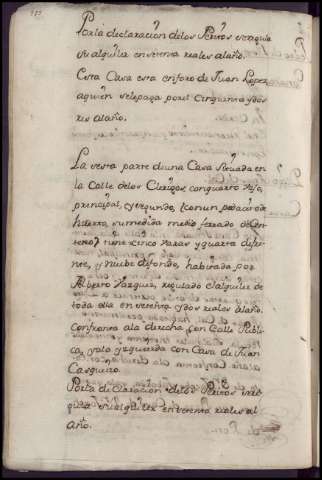 Por la declarazion de los Peritos se regula
su alquiler en setenta reales al año.
Esta Casa esta en foro de Juan Lopez
aquien se le paga por el Cinquenta y dos
rrs al año.
La sexta parte de una Casa situada en
la Calle de los Clerigos, con quarto vajo,
principal, y segundo, (con un pedazo de
huerto, su medida medio ferrado de Cen-
teno) tiene cinco varas y quarta defren-
te, y nuebe de fondo, habitada por
Alberto Vazquez, regulado el alquiler de
toda ella en sesenta y dos reales al año.
Confronta ala derecha con Calle Publi-
ca, y ala yzquierda con Casa de Juan
Casqueizo.
Por la declaracion de los Peritos se re-
gula su alquiler en treinta reales al
año.